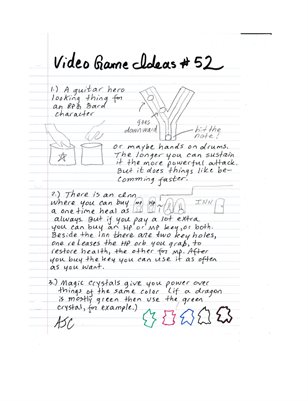 Video Game Ideas # 52
1.) A guitar hero
looking thing for
an RPG Bard
character
goes
downward
hit the
note!
or maybe hands on drums.
The longer you can sustain
it the more powerful attack.
But it does things like be-
comming faster.
2.) There is an inn
where you can buy
a one time heal as
always. But if you pay a lot extra
you can buy an HP or MP key, or both.
Beside the inn there are two key holes,
one releases the HP orb you grab, to
restore health, the other for MP. After
you buy the key you can use it as often
as you want.
INN
3.) Magic crystals give you power over
things of the same color (if a dragon
is mostly green then use the green
crystal, for example.)
AJC